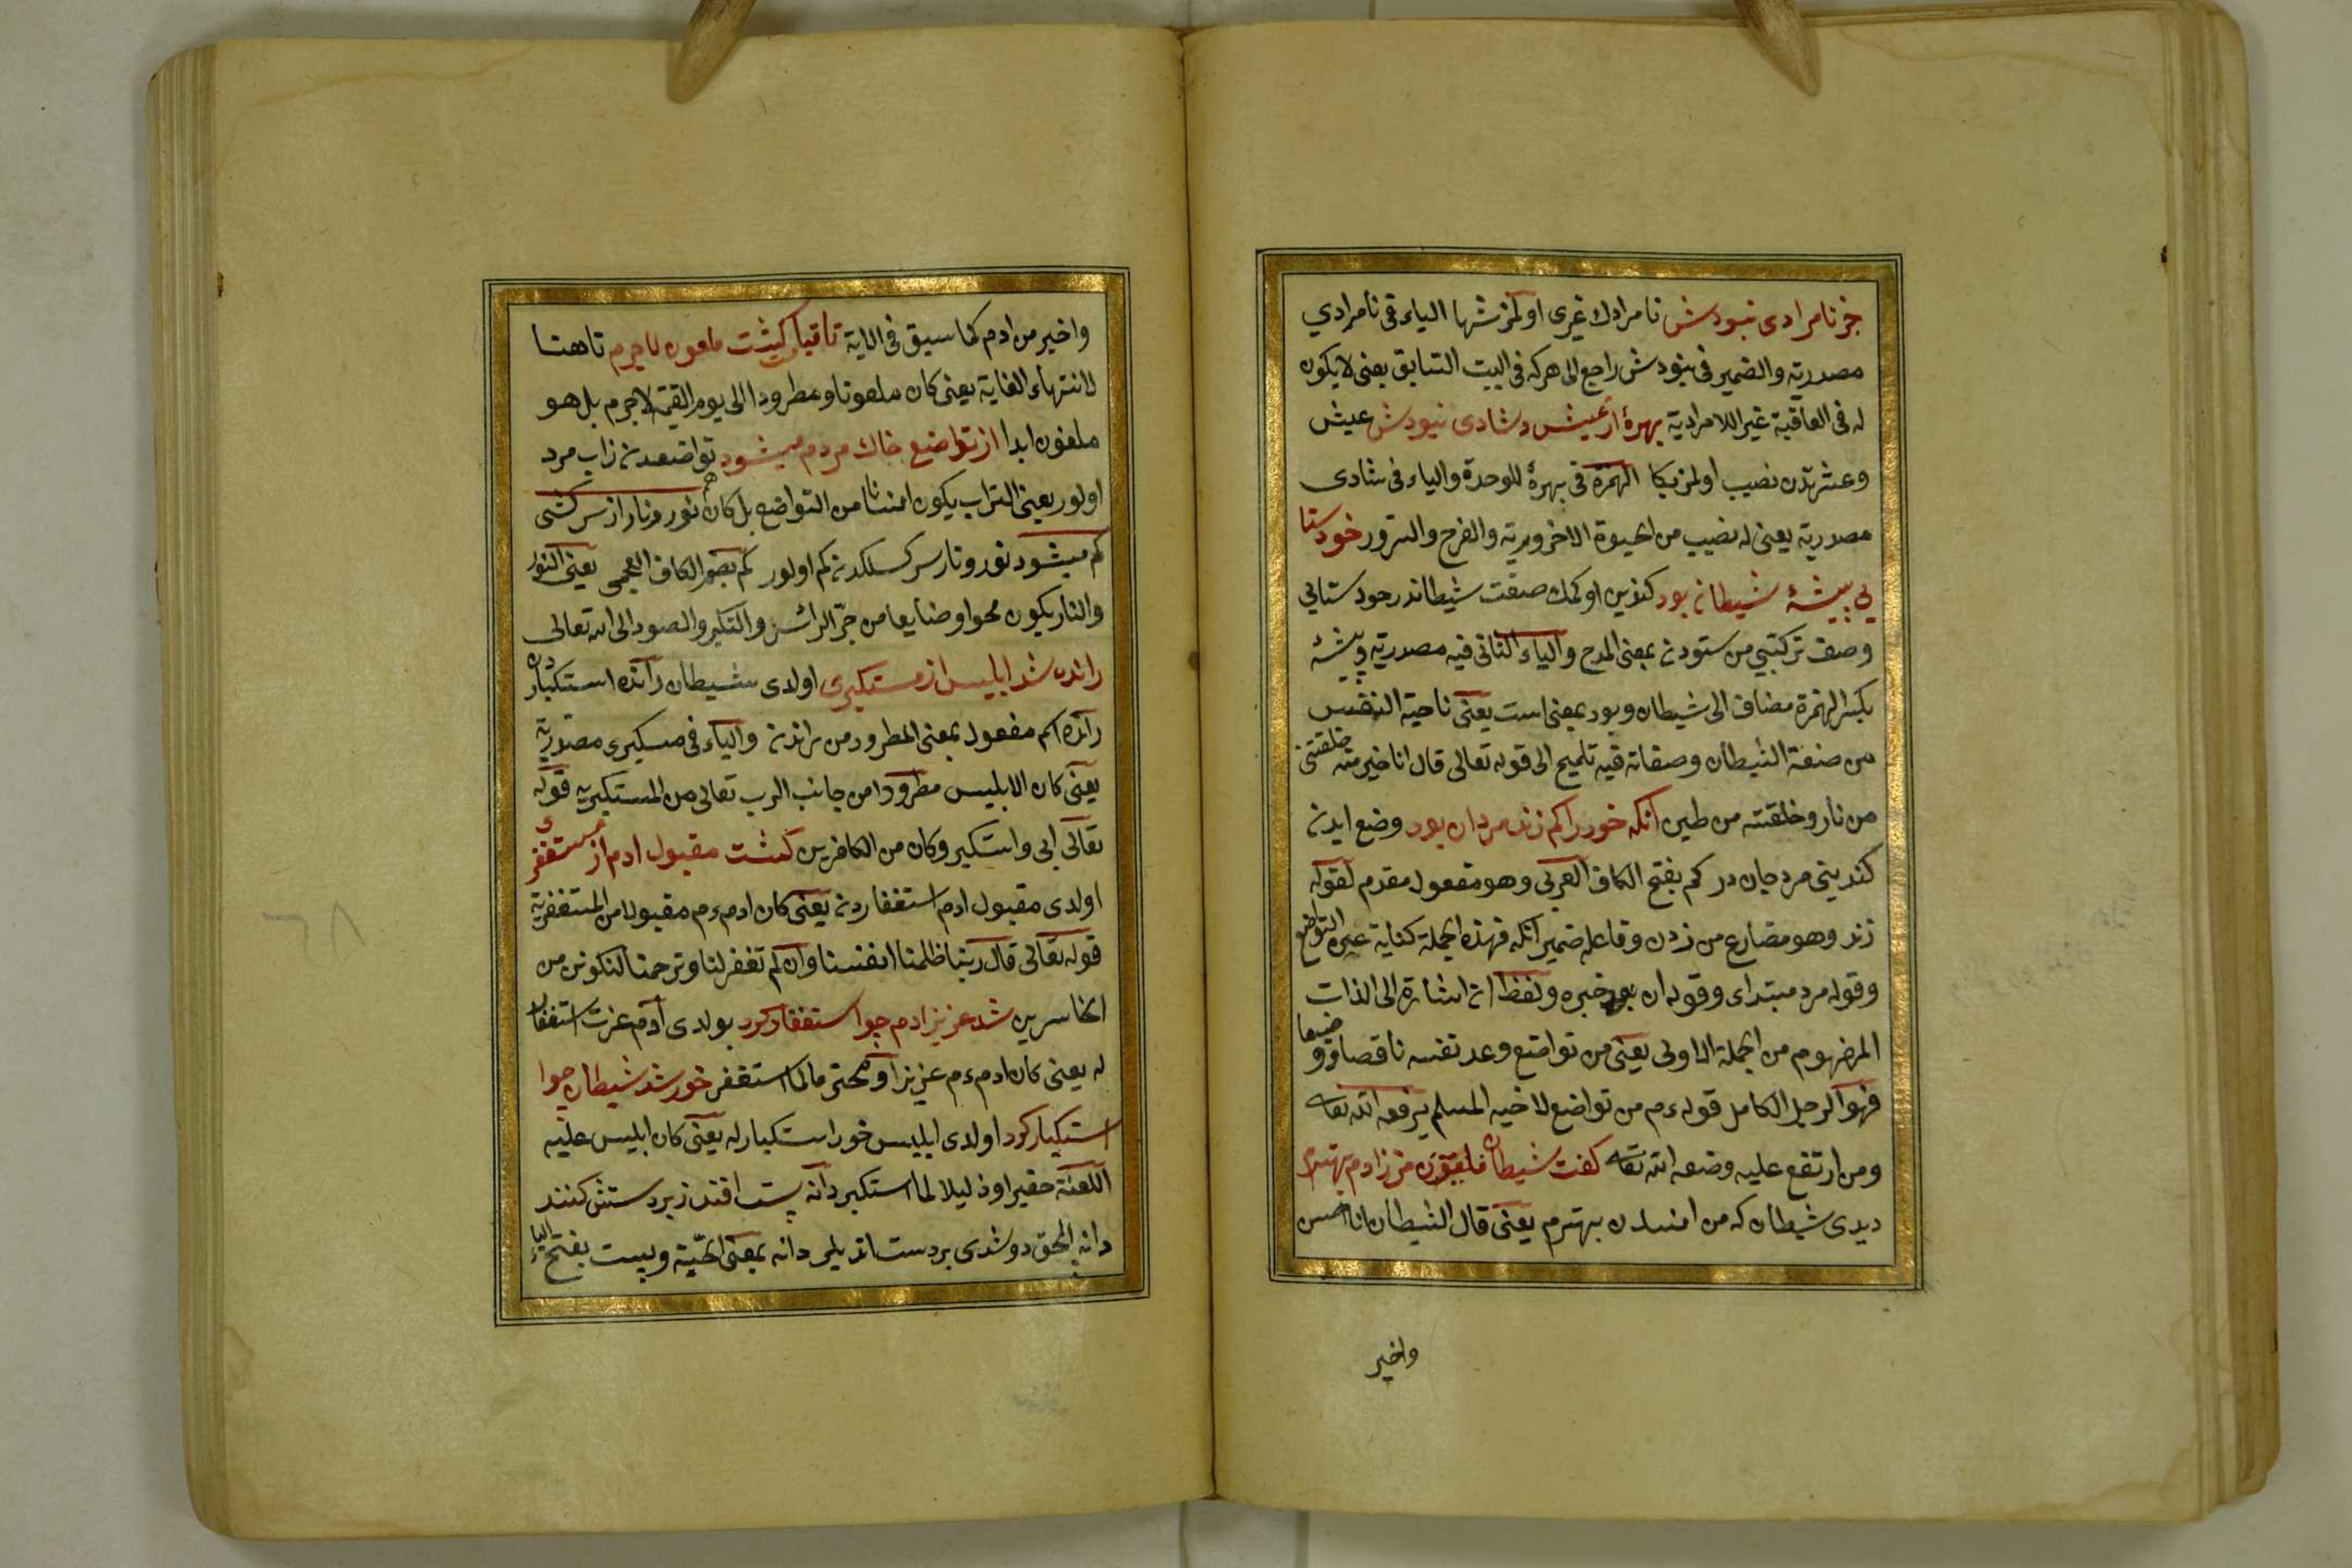 جز نامرادی نبودش نامرادك غيری اولمز شها الياء فی نامرادي
مصدريه والضمير فی نبودش راجع الی هركه فی البيت السابق يعنی لا يكون
له فی العاقبة غير اللامرادية بهرهٔ از عيش وشادی نبودش عيش
وعشرتدن نصيب اولمز بكا الهمزة فی بهرهٔ للوحدة والياء فی شادی
مصدرية يعنی له نصيب من الحيوة الاخروية والفرح والسرور خود ستا
يي پيشهٔ شيطان بود كندين اوكمك صفت شيطاندر خود ستايي
وصف تركيبي من ستودن بمعنی المدح والياء الثانی فيه مصدرية وپيشهٔ
بكسر الهمزة مضاف الی شيطان وبود بمعنی است يعنی ناحية النفس
من صنعة الشيطان وصفاته فيه تلميح الی قوله تعالی قال انا خير منه خلقتنی
من نار وخلقته من طين انكه خود را كم زند مرد ان بود وضع ايدن
كنديني مرد جان در كم بفتح الكاف العربی وهو مفعول مقدم لقوله
زند وهو مضارع من زدن وفاعله ضمير انكه فهذه الجملة كناية عن التواضع
وقوله مرد مبتدای وقوله ان بود خبره ولفظ ان اشارة الی الذات
المفهوم من الجملة الاولی يعنی من تواضع وعد نفسه ناقصا ووضيعا
فهو الرجل الكامل قوله ءم من تواضع لاخيه المسلم يرفعه الله تعا
ومن ارتفع عليه وضعه الله تعا كفت شيطان من ز ادم بهترم
ديدی شيطان كه من ادمدن بهترم يعنی قال الشيطان انا احسن
واخير
واخير من ادم كما سبق فی الاية تا قيامت كشت ملعون لاجرم تا هنا
لانتهاء الغاية يعنی كان ملعونا ومطرودا الی يوم القيمة لاجرم بل هو
ملعون ابدا از تواضع خاك مردم ميشود تواضعدن زاب مرد
اولور يعنی التراب يكون انسانا من التواضع بل كان هم نور ونار از سر كشی
كم ميشود نور ونار سر كسلكدن كم اولور كم بضم الكاف العجمی يعنی النور
والنار يكون محوا وضايعا من جر الرأس والتكبر والصعود الی الله تعالی
رانده شد ابليس از مستكبری اولدی شيطان رانده استكباردن
رانده اسم مفعول بمعنی المطرود من راندن والياء فی مستكبری مصدرية
يعنی كان الابليس مطرودا من جانب الرب تعالی من المستكبرية قوله
تعالی ابی واستكبر وكان من الكافرين كشت مقبول ادم از مستغفری
اولدی مقبول ادم استغفاردن يعنی كان ادم ءم مقبولا من المستغفرية
قوله تعالی قال ربنا ظلمنا انفسنا وان لم تغفر لنا وترحمنا لنكونن من
الخاسرين شد عزيز ادم چو استغفار كرد بولدی آدم عزت استغفار
له يعنی كان ادم ءم عزيزا ومحترما لما استغفر خور شد شيطان چو
استكبار كرد اولدی ابليس خور استكبار له يعنی كان ابليس عليه
اللعنة حقيرا وذليلا لما استكبر دانه پست افتد زبر دستش كنند
دانه الحق دوشدی بردست اتديلر دانه بمعنی الحبة وپست بفتح الباء